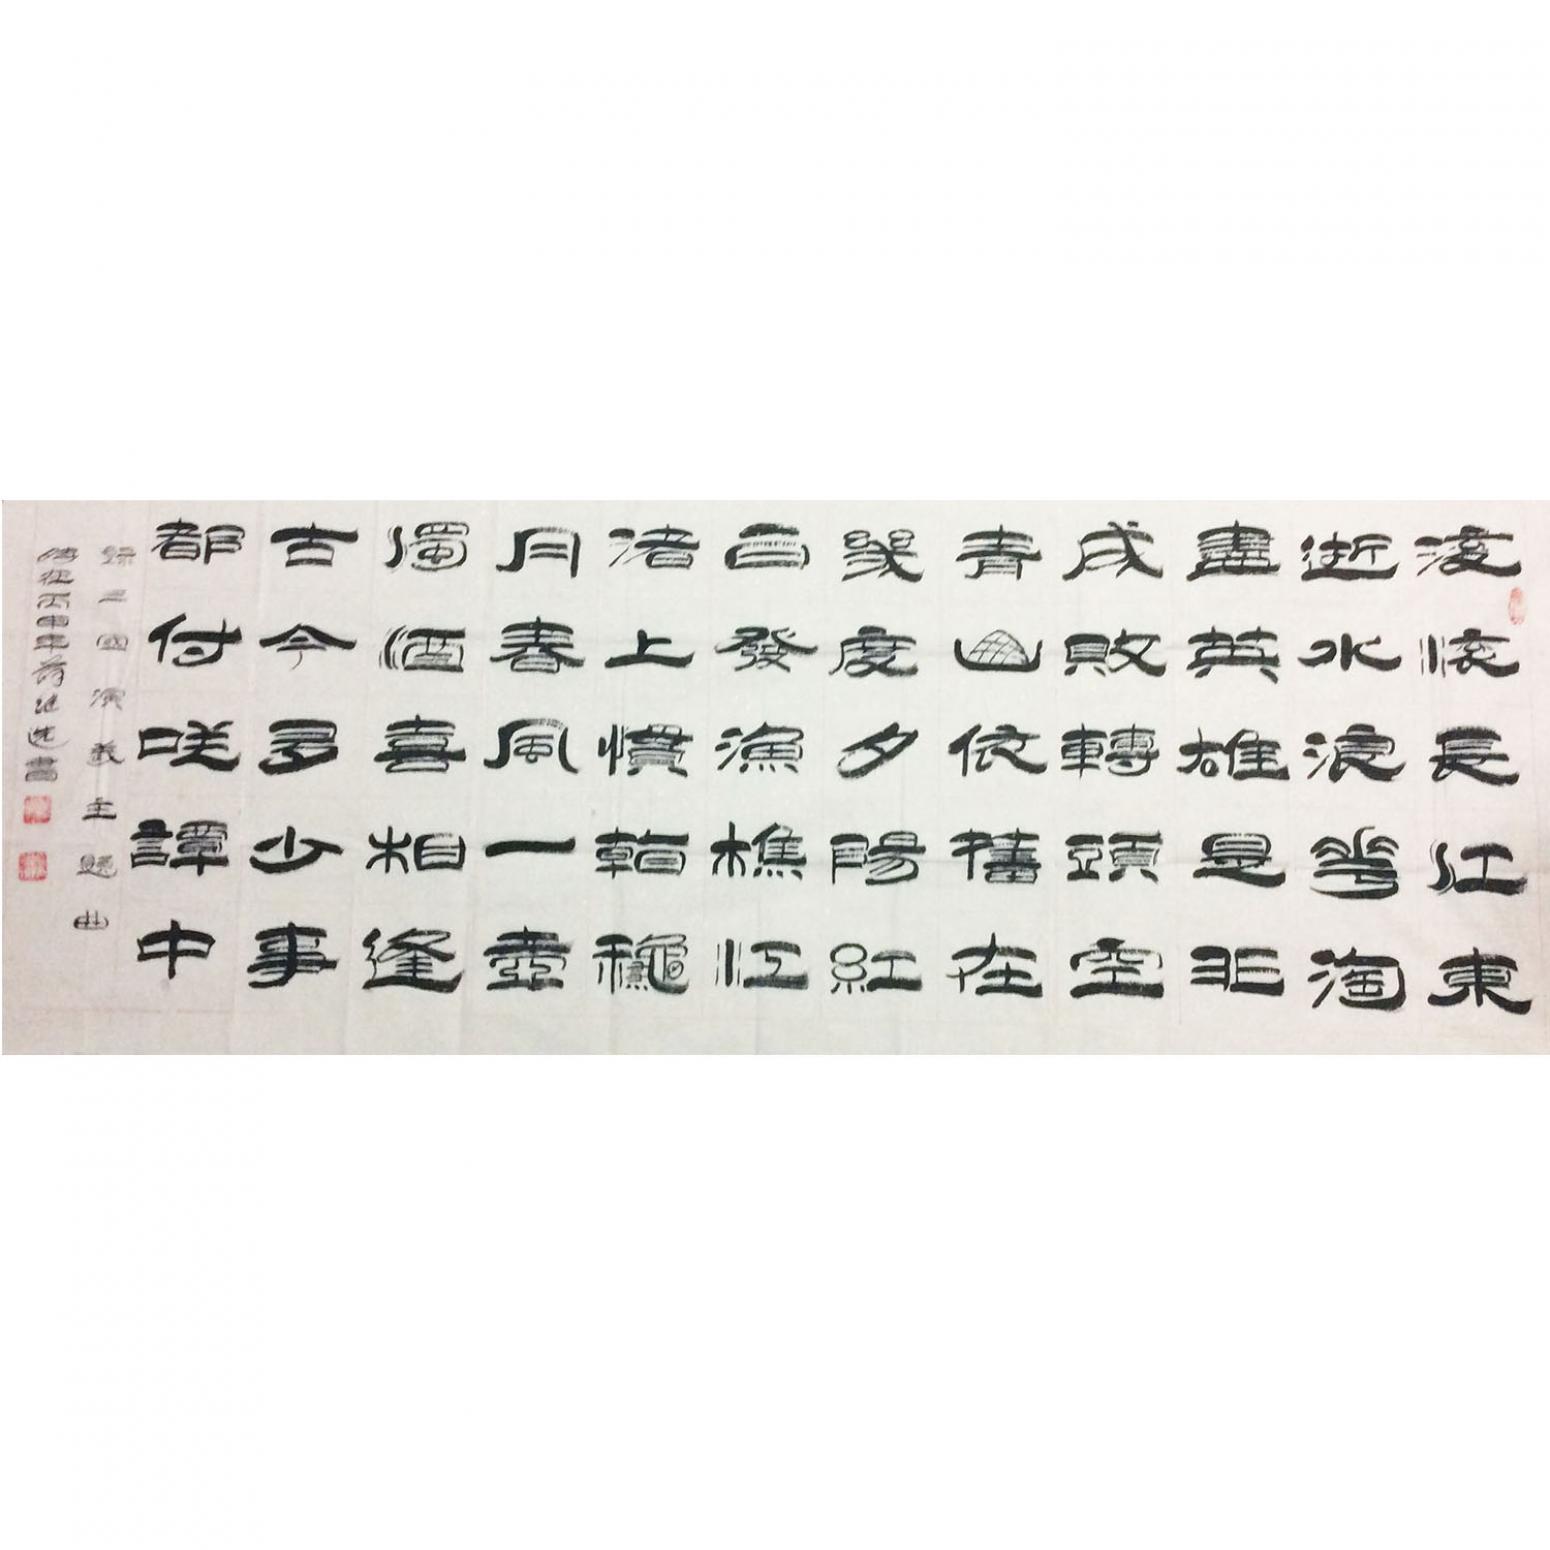 滾滾長江東
逝水浪花淘
盡英雄是非
成敗轉頭空
青山依舊在
幾度夕陽紅
白發漁樵江
渚上慣看龝
月春風一壺
濁酒喜相逢
古今多少事
都付咲譚中
錄三國演義主題曲
丙申年書